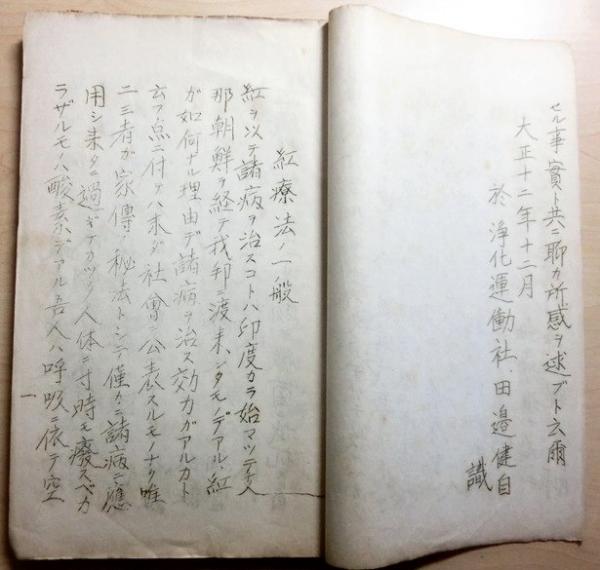 セル事實ト共ニ聊カ所感ヲ述ブト云爾
大正十二年十二月
於浄化運働社、田邉健自
識
紅療法ノ一般
紅ヲ以テ諸病ヲ治スコトハ印度カラ始マツテ支
那朝鮮ヲ経テ我邦ニ渡来シタモノデアル、紅
ガ如何ナル理由デ諸病ヲ治ス効力ガアルカト
云フ点ニ付テハ未ダ社會ニ公表スルモノナク唯
二三者ガ家傳ノ秘法トシテ僅カニ諸病ニ應
用シ来タニ過ギナカツタ人体ニ寸時モ癈スベカ
ラザルモノハ酸素デアル吾人ハ呼吸ニ依テ空
一